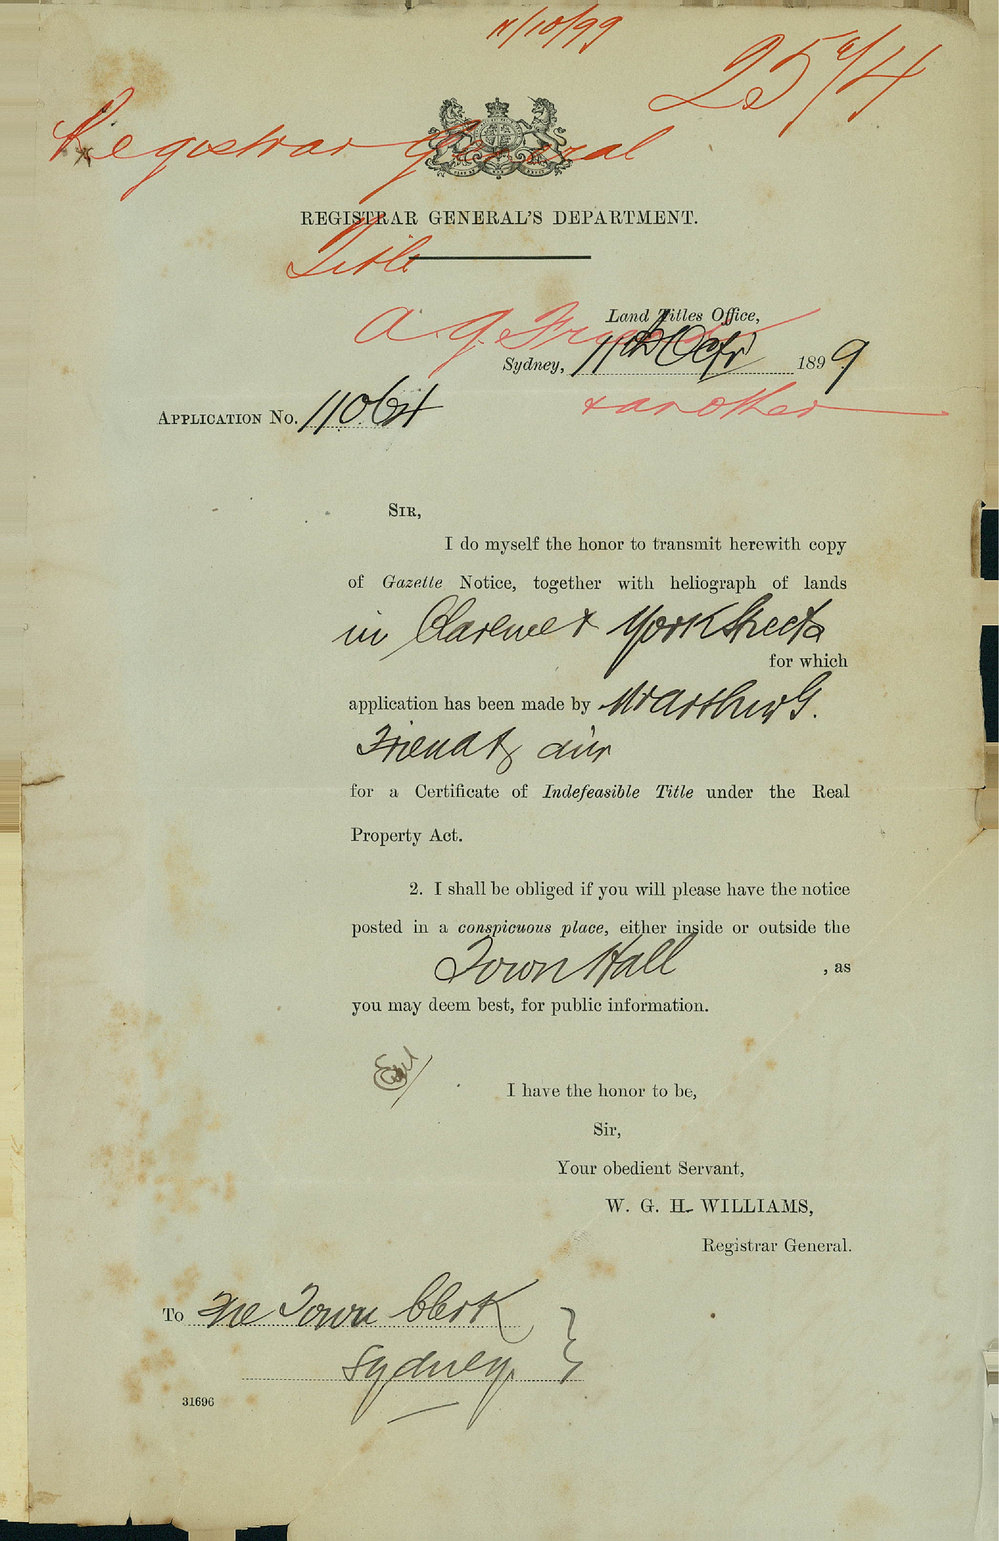 11/10/99
25 4
Registrar General
REGISTRAR GENERAL'S DEPARTMENT.
Title
Land Titles Office,
A. G. Friend
Sydney, 11th Octr 1899.
& another
APPLICATION No. 11064
SIR,
I do myself the honor to transmit herewith copy
of Gazette Notice, together with heliograph of lands
in Clarence & York Streets
for which
application has been made by Mr Arthur G.
Friend &
for a Certificate of Indefeasible Title under the Real
Property Act.
2. I shall be obliged if you will please have the notice
posted in a conspicuous place, either inside or outside the
Town Hall , as
you may deem best, for public information.
I have the honor to be,
Sir,
Your obedient Servant,
W. G. H. WILLIAMS,
Registrar General.
To The Town Clerk
Sydney.
31696